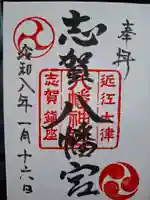 奉拝
志賀八幡宮
近江大津
志賀鎮座
令和八年一月十六日